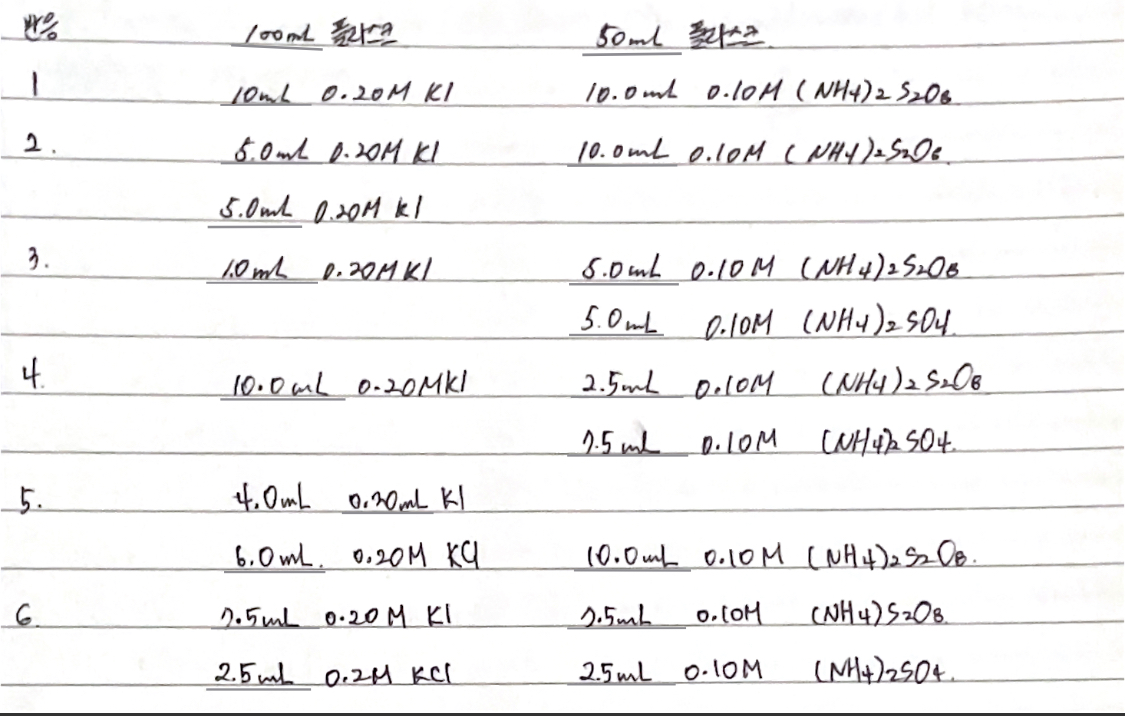 반응 100ml 플라스크 50ml 플라스크
1 10ml 0.20M KI 10.0ml 0.10M (NH4)2 S2O8
2. 5.0ml 0.20M KI 10.0ml 0.10M (NH4)2S2O8.
5.0ml 0.20M KI
3. 1.0ml 0.20M KI 5.0ml 0.10M (NH4)2S2O8
5.0mL 0.10M (NH4)2 SO4.
4. 10.0mL 0.20MKI 2.5mL 0.10M (NH4)2 S2O8
7.5mL 0.10M (NH4)2 SO4.
5. 4.0mL 0.20mL KI
6.0mL. 0.20M KCl 10.0mL 0.10M (NH4)2S2O8.
6 7.5mL 0.20M KI 7.5mL 0.10M (NH4)S2O8.
2.5mL 0.2M KCl 2.5mL 0.10M (NH4)2SO4.